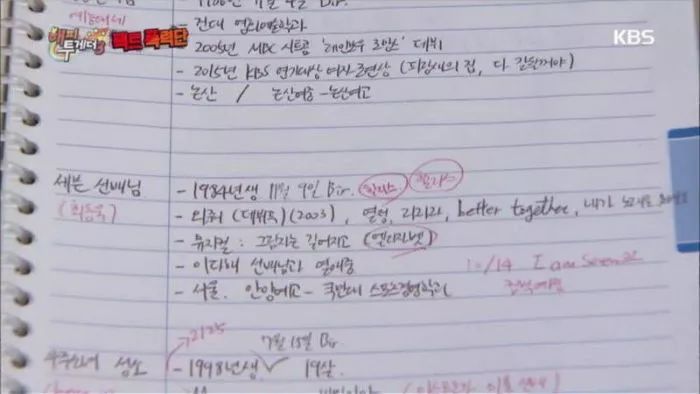 해피투게더3 팩트 폭력단
KBS
- 건대 영화예술학과
- 2005년 MBC 시트콤 '레인보우 로망스' 데뷔
- 2015년 KBS 연기대상 여자 조연상 (파랑새의 집, 다 잘될꺼야)
- 논산 / 논산여중 - 논산여고
세븐 선배님 - 1984년생 11월 9일 Bir.
(최동욱) - 와줘 (데뷔곡) (2003), 열정, 라라라, better together, 내가 노래를
- 뮤지컬 : 그림자는 길어지고 (엘리자벳)
- 이다해 선배님과 열애중 10/14 I am Seven
- 서울. 안양예고 - 국민대 스포츠경영학과 컴백예정
2125
7월 15일 Bir
우주소녀 성소 - 1998년생 19살